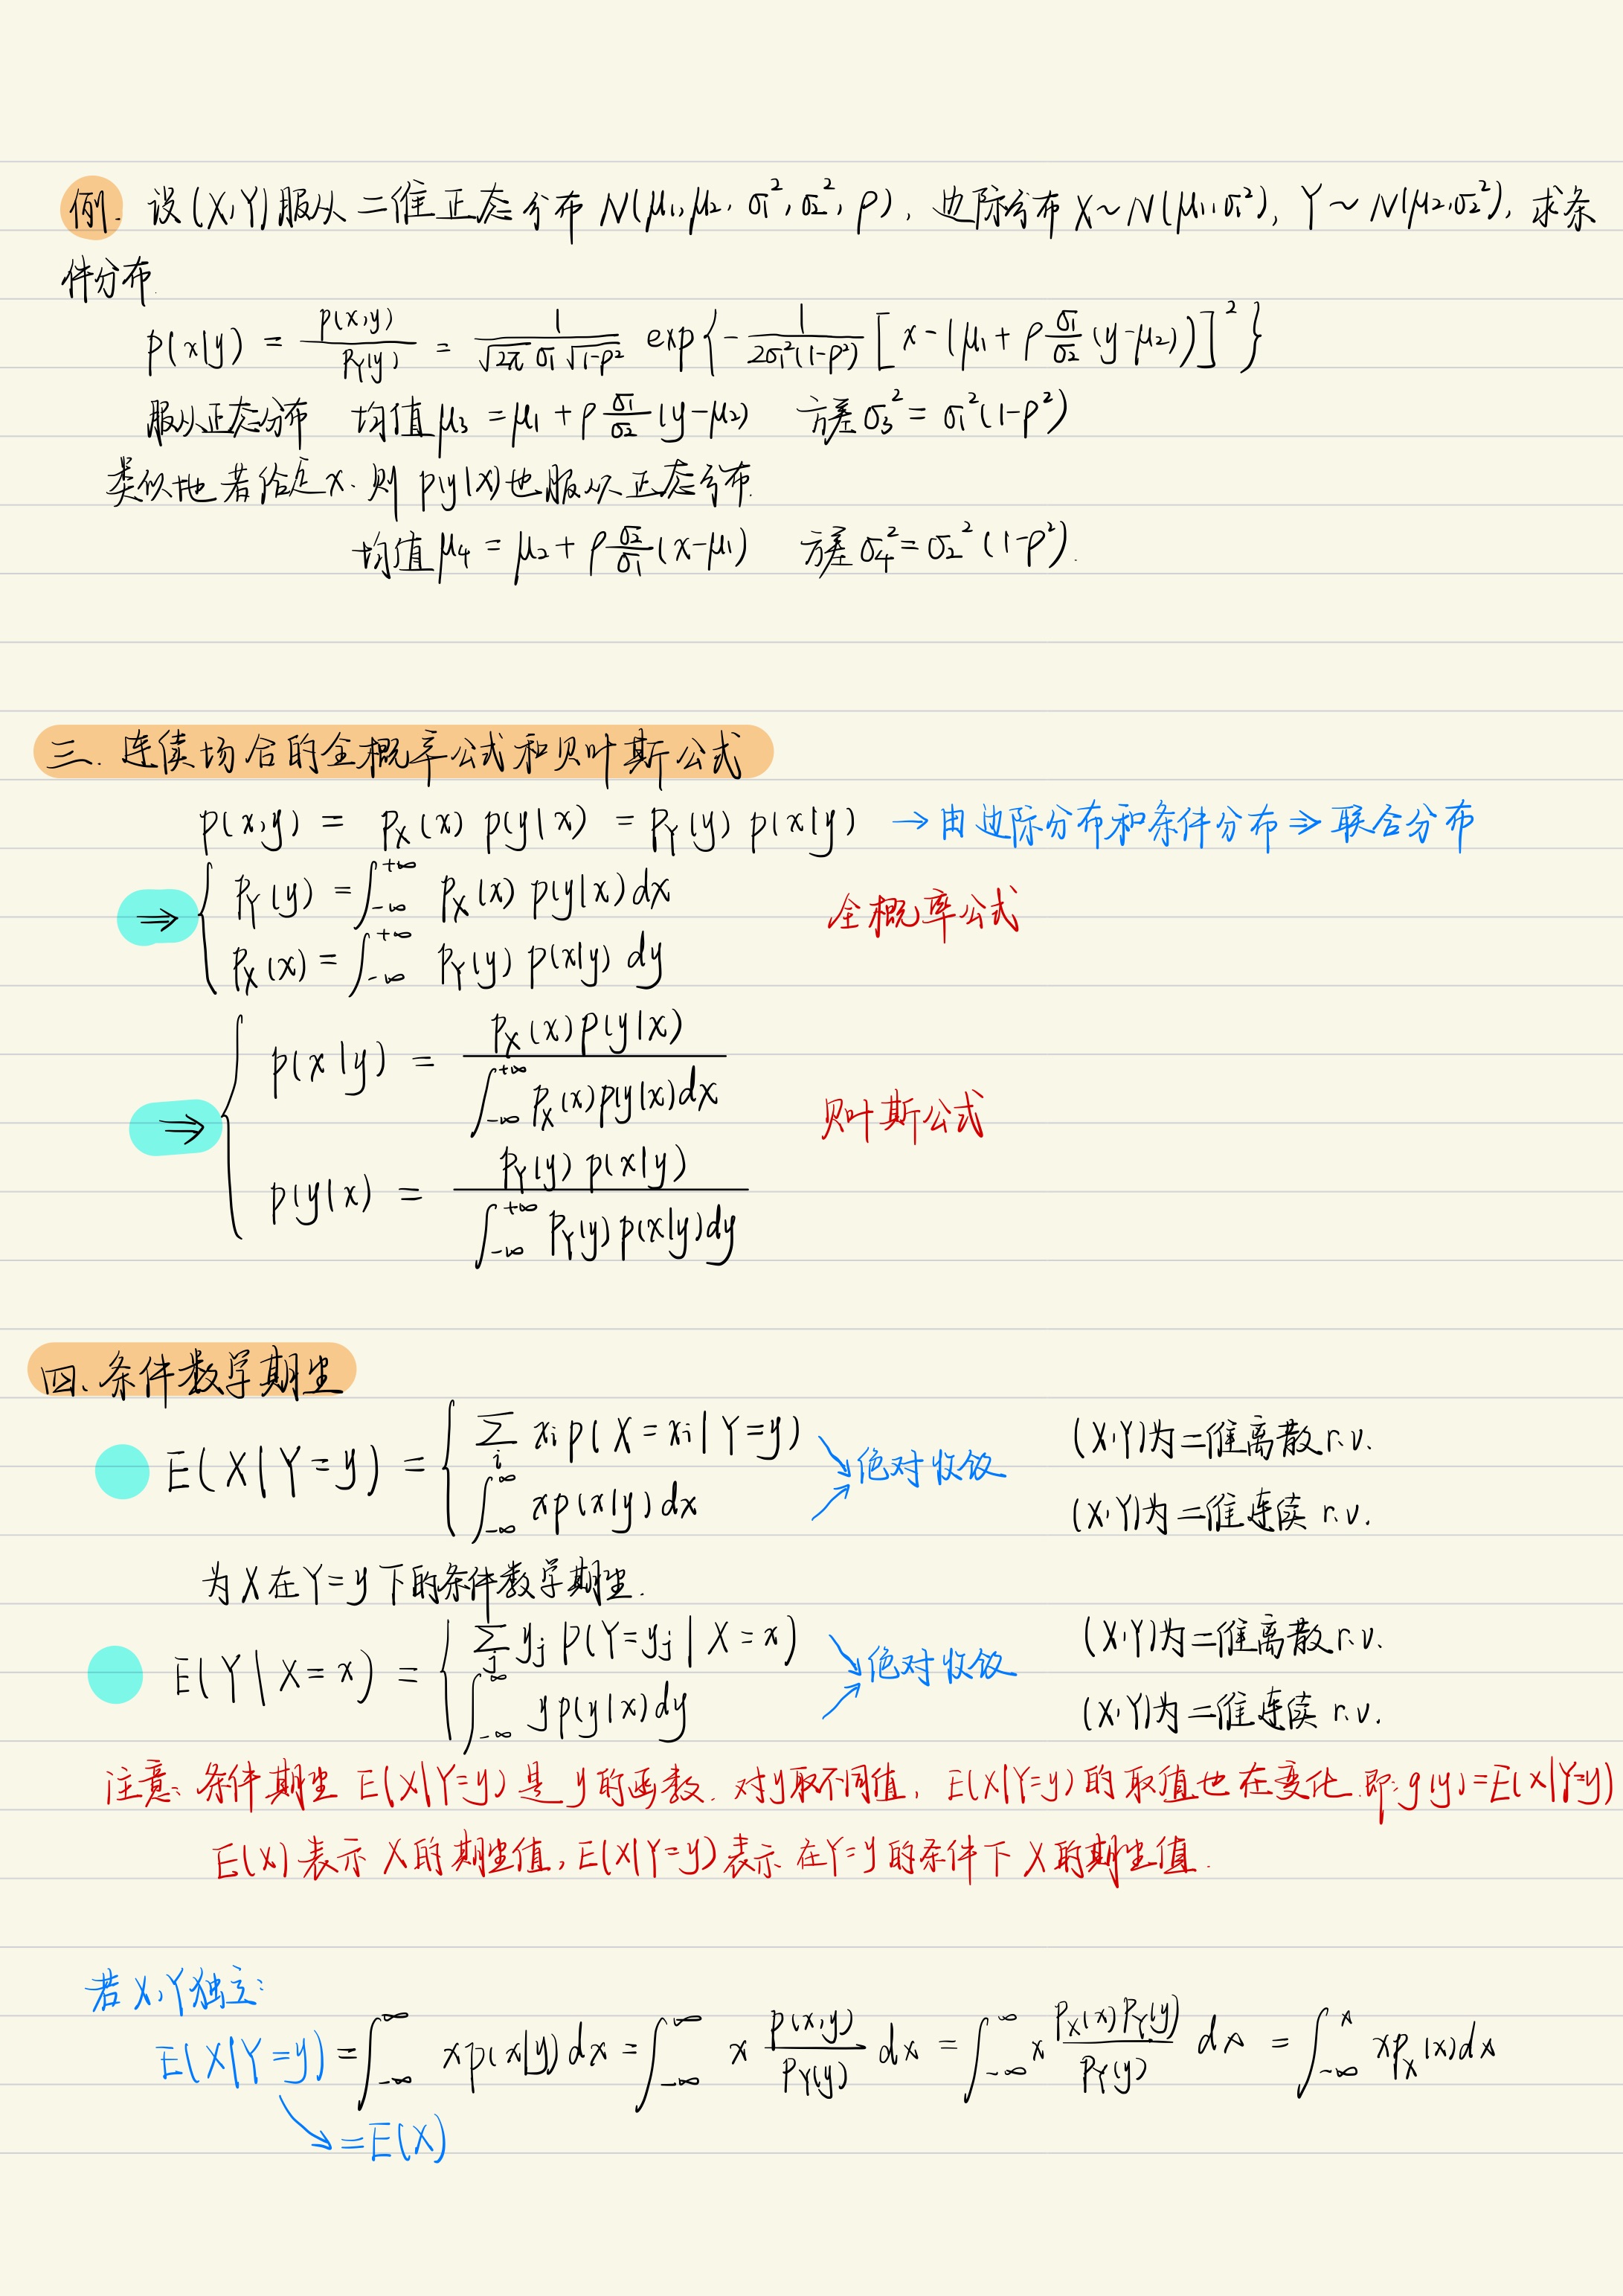 例. 设(X,Y)服从二维正态分布 N(μ₁,μ₂,σ₁²,σ₂²,ρ), 边际分布 X~N(μ₁,σ₁²), Y~N(μ₂,σ₂²), 求条
件分布.
p(x|y) = p(x,y)/p_Y(y) = 1/(√2π σ₁ √1-ρ²) exp{-1/(2σ₁²(1-ρ²)) [x-(μ₁+ρ σ₁/σ₂ (y-μ₂))]²}
服从正态分布 均值μ₃ = μ₁+ρ σ₁/σ₂ (y-μ₂) 方差σ₃² = σ₁²(1-ρ²)
类似地 若给定x. 则 p(y|x)也服从正态分布.
均值μ₄ = μ₂+ρ σ₂/σ₁ (x-μ₁) 方差σ₄² = σ₂²(1-ρ²).
三. 连续场合的全概率公式和贝叶斯公式
p(x,y) = p_X(x) p(y|x) = p_Y(y) p(x|y) → 由边际分布和条件分布 ⇒ 联合分布
⇒ { p_Y(y) = ∫_{-∞}^{+∞} p_X(x) p(y|x)dx 全概率公式
p_X(x) = ∫_{-∞}^{+∞} p_Y(y) p(x|y) dy
⇒ { p(x|y) = p_X(x)p(y|x) / ∫_{-∞}^{+∞} p_X(x)p(y|x)dx 贝叶斯公式
p(y|x) = p_Y(y) p(x|y) / ∫_{-∞}^{+∞} p_Y(y)p(x|y)dy
四. 条件数学期望
E(X|Y=y) = { Σ_i x_i p(X=x_i|Y=y) 绝对收敛 (X,Y)为二维离散r.v.
∫_{-∞}^{∞} xp(x|y)dx (X,Y)为二维连续r.v.
为X在Y=y下的条件数学期望.
E(Y|X=x) = { Σ_j y_j p(Y=y_j|X=x) 绝对收敛 (X,Y)为二维离散r.v.
∫_{-∞}^{∞} yp(y|x)dy (X,Y)为二维连续r.v.
注意: 条件期望 E(X|Y=y)是y的函数. 对y取不同值, E(X|Y=y)的取值也在变化. 即: g(y)=E(X|Y=y)
E(X)表示X的期望值, E(X|Y=y)表示在Y=y的条件下X的期望值.
若X,Y独立:
E(X|Y=y) = ∫_{-∞}^{∞} xp(x|y)dx = ∫_{-∞}^{∞} x p(x,y)/p_Y(y) dx = ∫_{-∞}^{∞} x p_X(x)p_Y(y)/p_Y(y) dx = ∫_{-∞}^{∞} xp_X(x)dx
↘ =E(X)